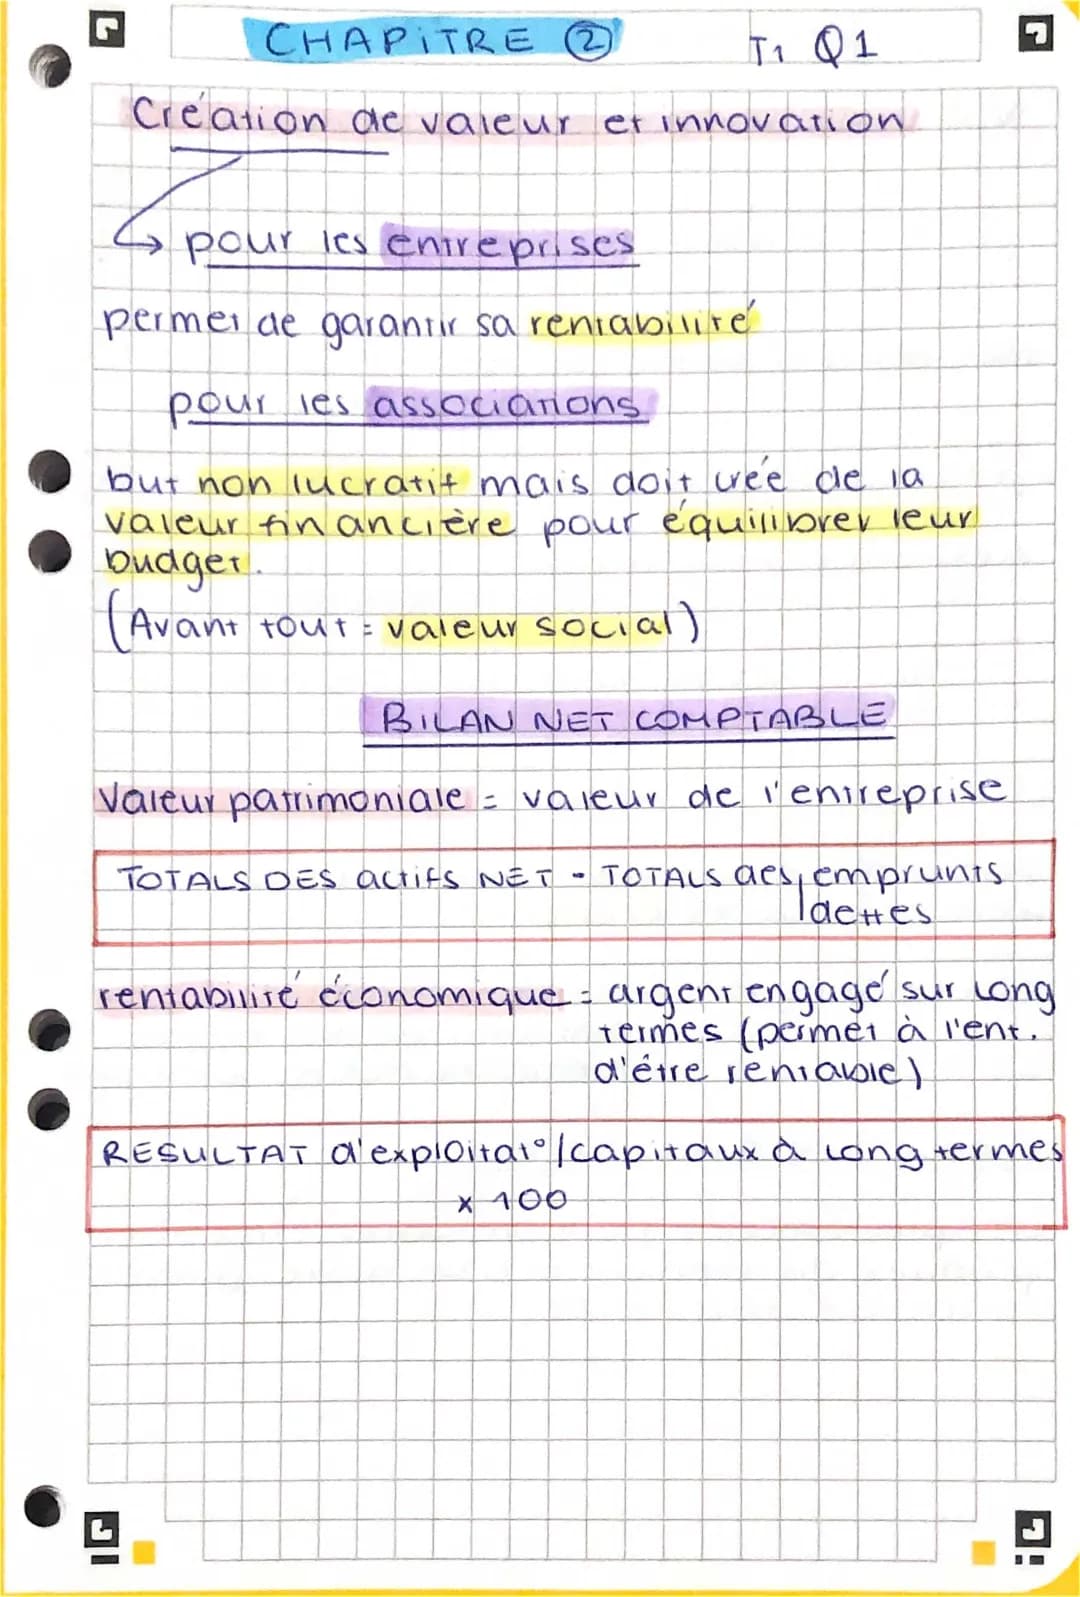 CHAPITRE ②
T1 Q1
Création de valeur et innovation
↳ pour les entreprises
permet de garantir sa rentabilité
pour les associations
but non lucratif mais doit crée de la
valeur financière pour équilibrer leur
budget.
(Avant tout = valeur social)
BILAN NET COMPTABLE
Valeur patrimoniale = valeur de l'entreprise
TOTALS DES actifs NET - TOTALS des emprunts
dettes
rentabilité économique = argent engagé sur long
termes (permet à l'ent.
d'être rentable)
RESULTAT d'exploitat°/capitaux à long termes
x 100